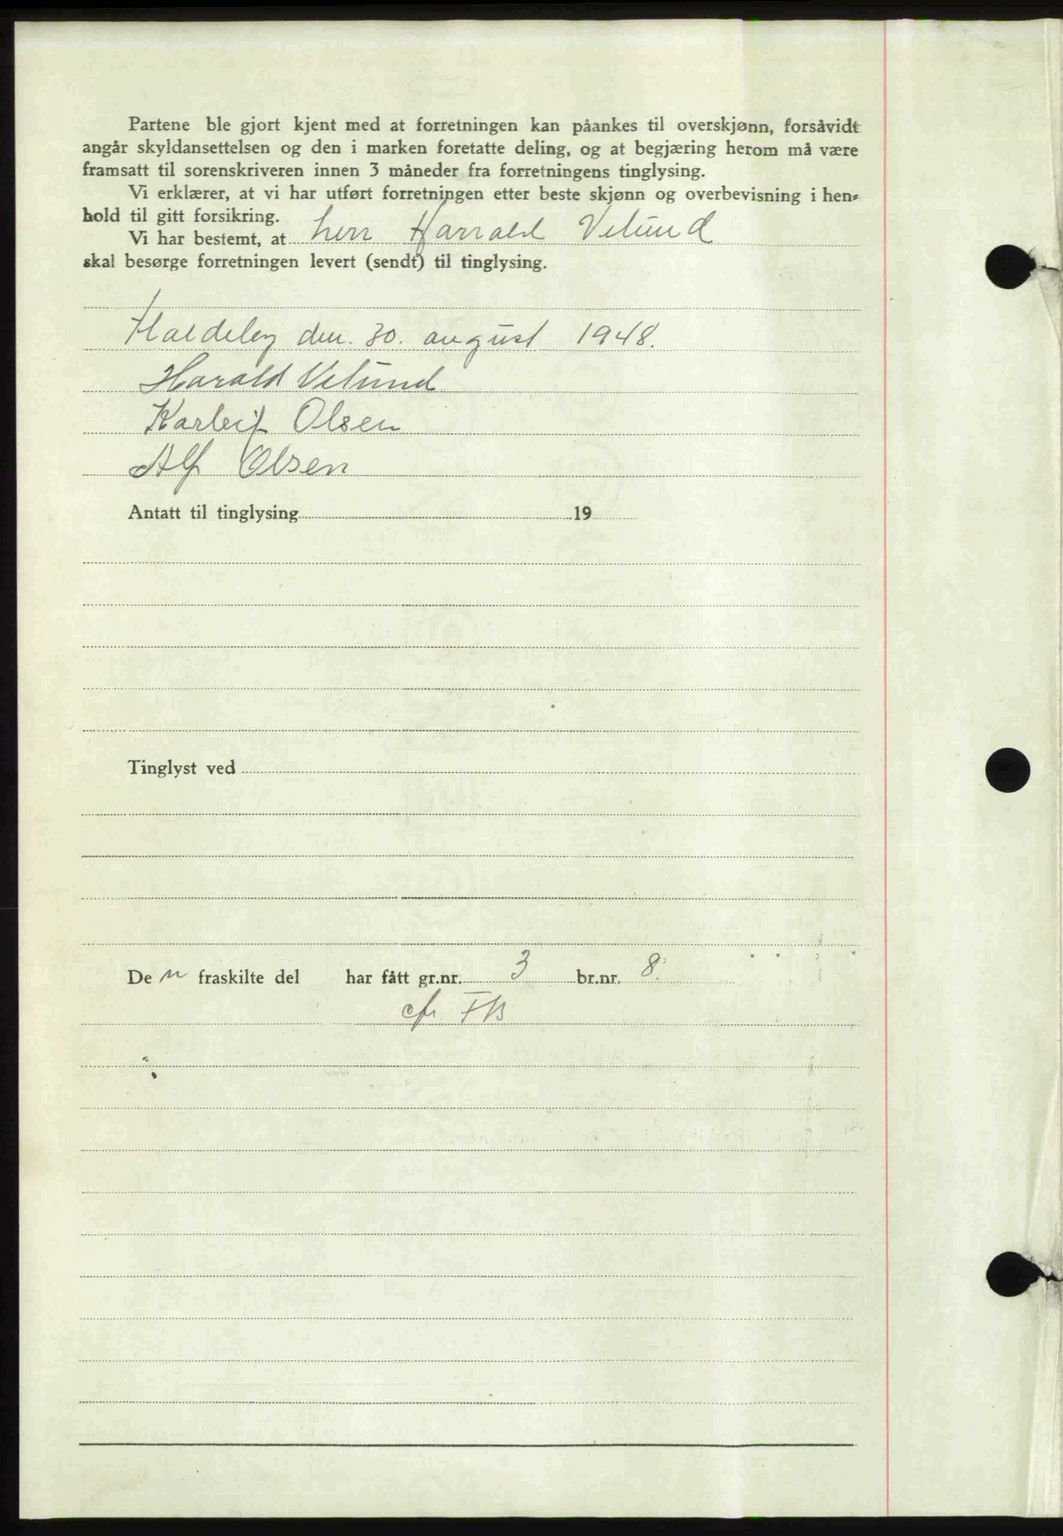 Partene ble gjort kjent med at forretningen kan påankes til overskjønn, forsåvidt
angår skyldansettelsen og den i marken foretatte deling, og at begjæring herom må være
framsatt til sorenskriveren innen 3 måneder fra forretningens tinglysing.
Vi erklærer, at vi har utført forretningen etter beste skjønn og overbevisning i hen-
hold til gitt forsikring.
Vi har bestemt, at herr Harrald Velund
skal besørge forretningen levert (sendt) til tinglysing.
den. 30. august 1948.
Harald Velund
Karleif Olsen
Alf Olsen
Antatt til tinglysing 19
Tinglyst ved
De n fraskilte del har fått gr.nr. 3 br.nr. 8.
cfr FB